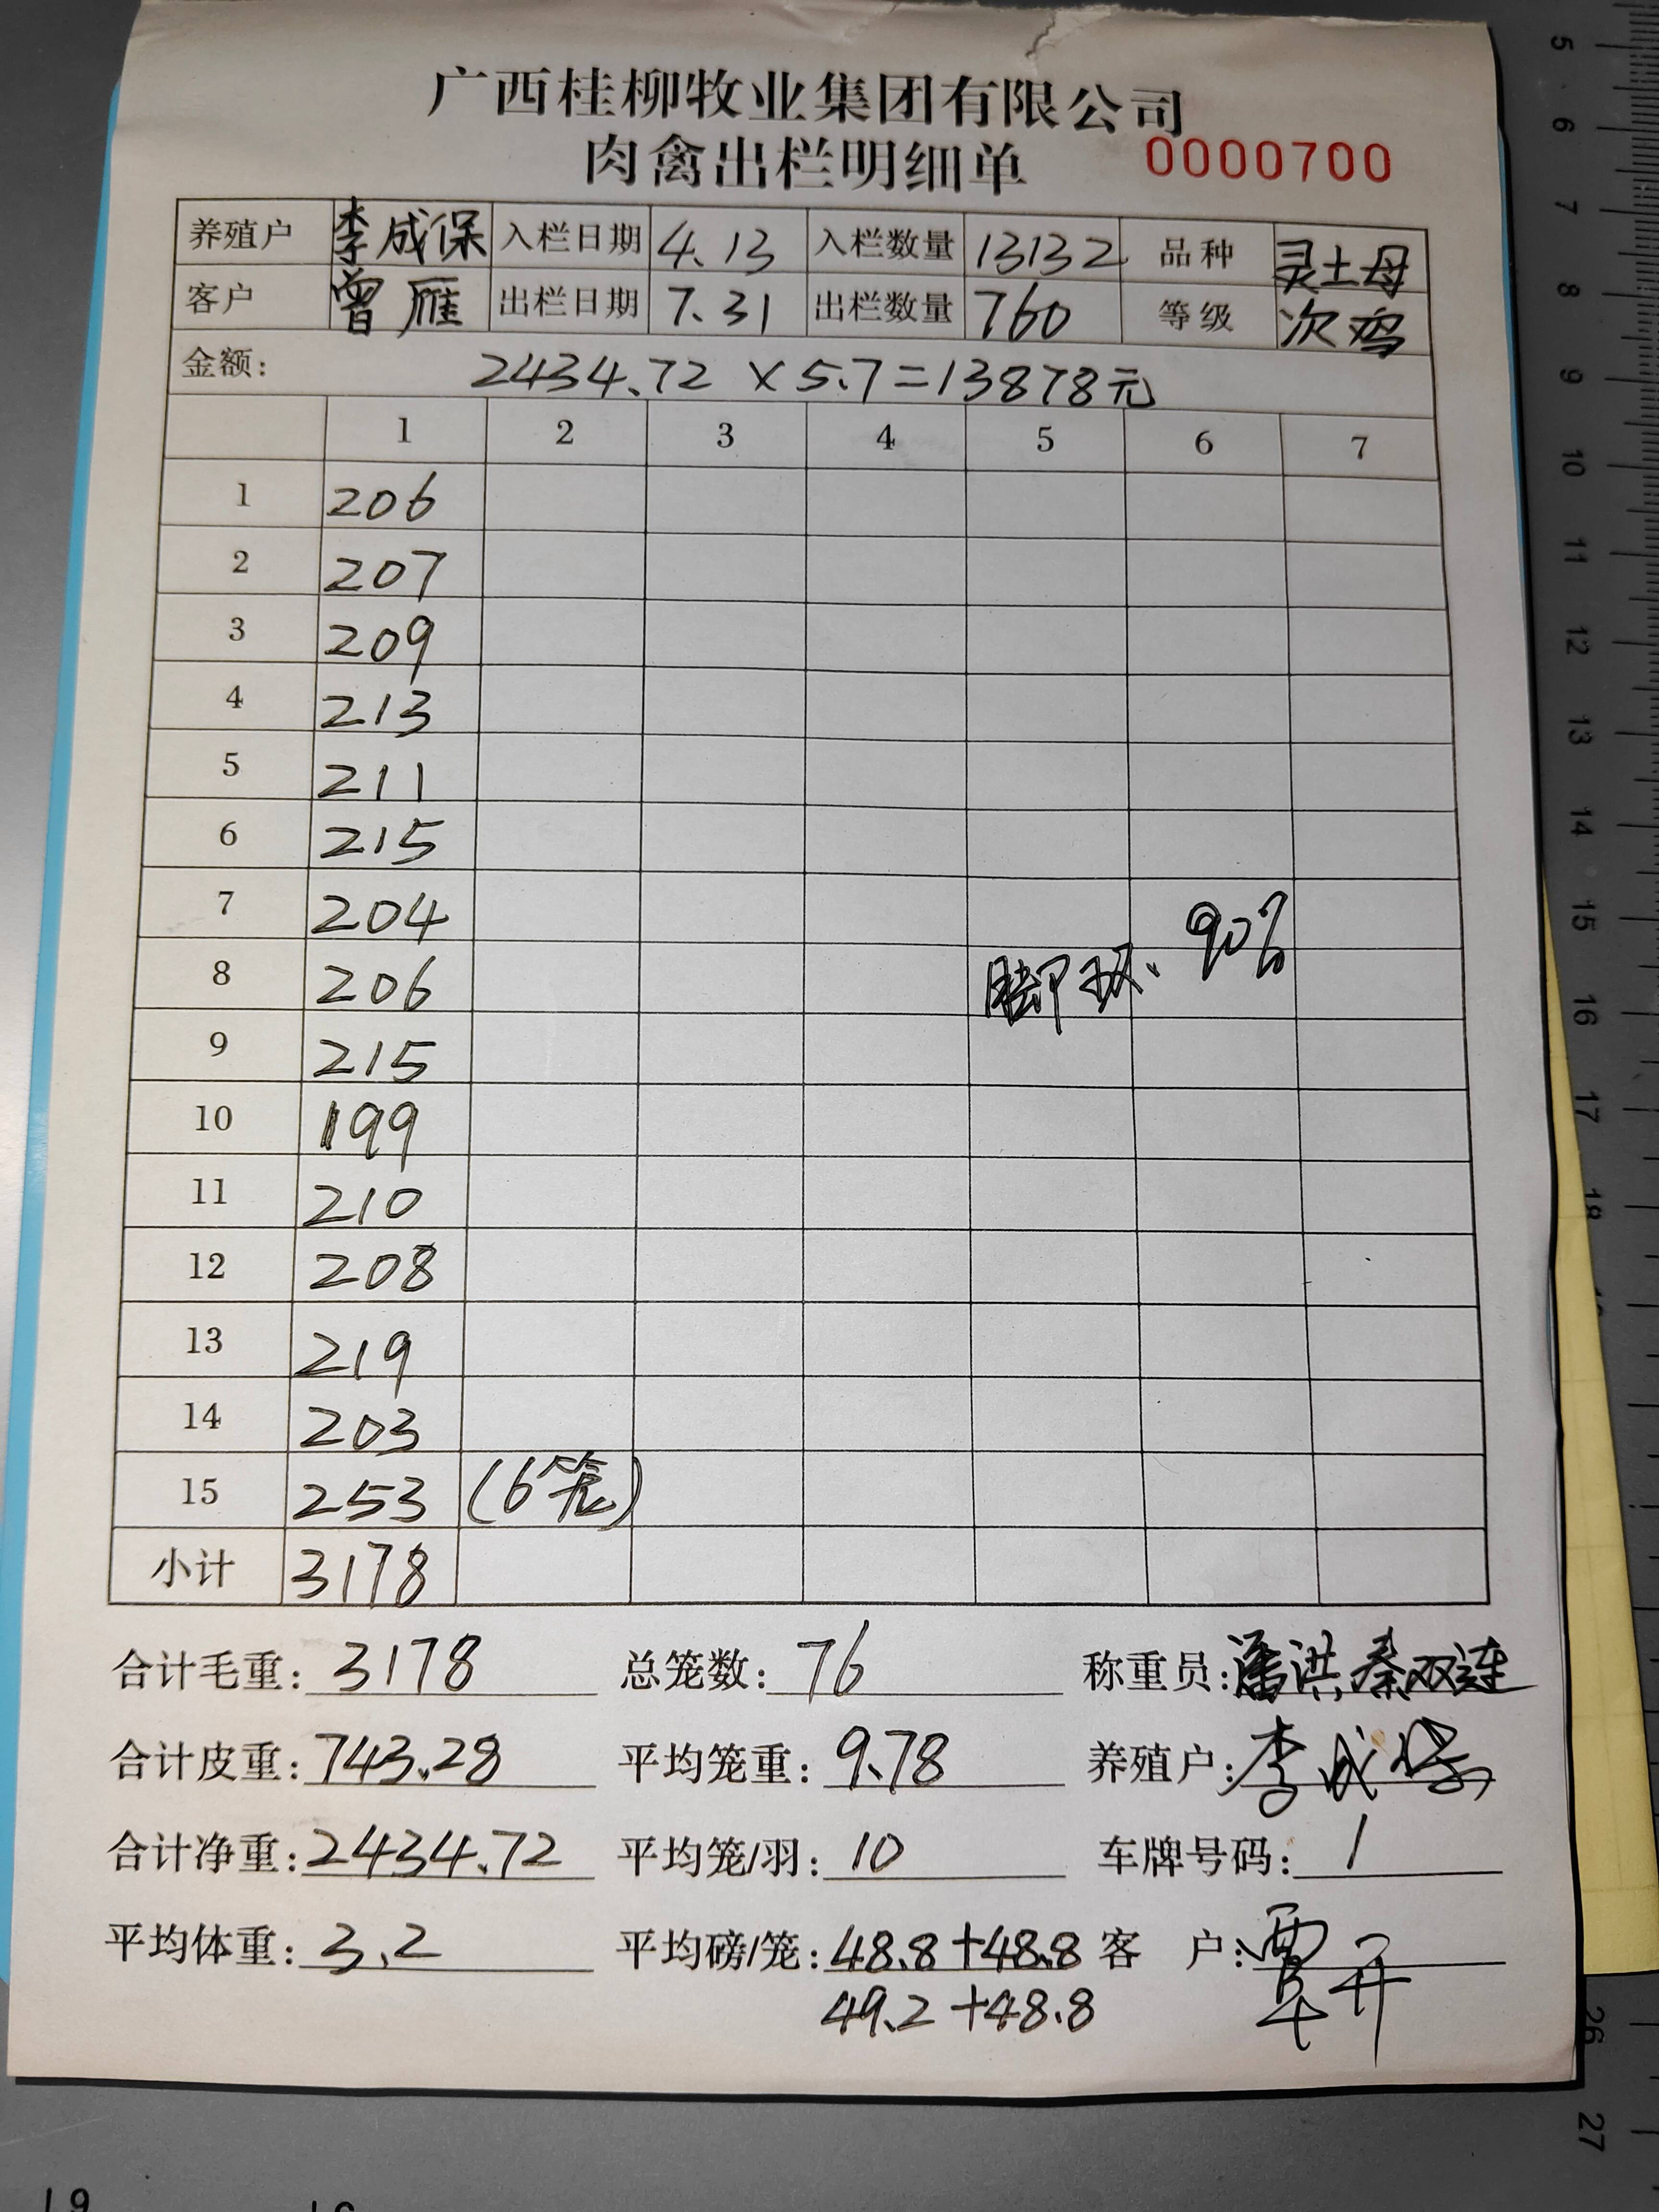 广西桂柳牧业集团有限公司
肉禽出栏明细单 0000700
养殖户 李成保 入栏日期 4.13 入栏数量 13132 品种 灵土母
客户 曾雁 出栏日期 7.31 出栏数量 760 等级 次鸡
金额: 2434.72 × 5.7=13878元
1 2 3 4 5 6 7
1 206
2 207
3 209
4 213
5 211
6 215
7 204
8 206 脚环、90%
9 215
10 199
11 210
12 208
13 219
14 203
15 253 (6笼)
小计 3178
合计毛重: 3178 总笼数: 76 称重员: 潘洪 秦双连
合计皮重: 743.28 平均笼重: 9.78 养殖户: 李成保
合计净重: 2434.72 平均笼/羽: 10 车牌号码: 1
平均体重: 3.2 平均磅/笼: 48.8+48.8 客 户: 覃开
49.2+48.8
5
6
7
8
9
10
11
12
13
14
15
16
17
18
26
27